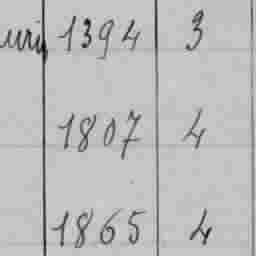 1394 3
1807 4
1865 4